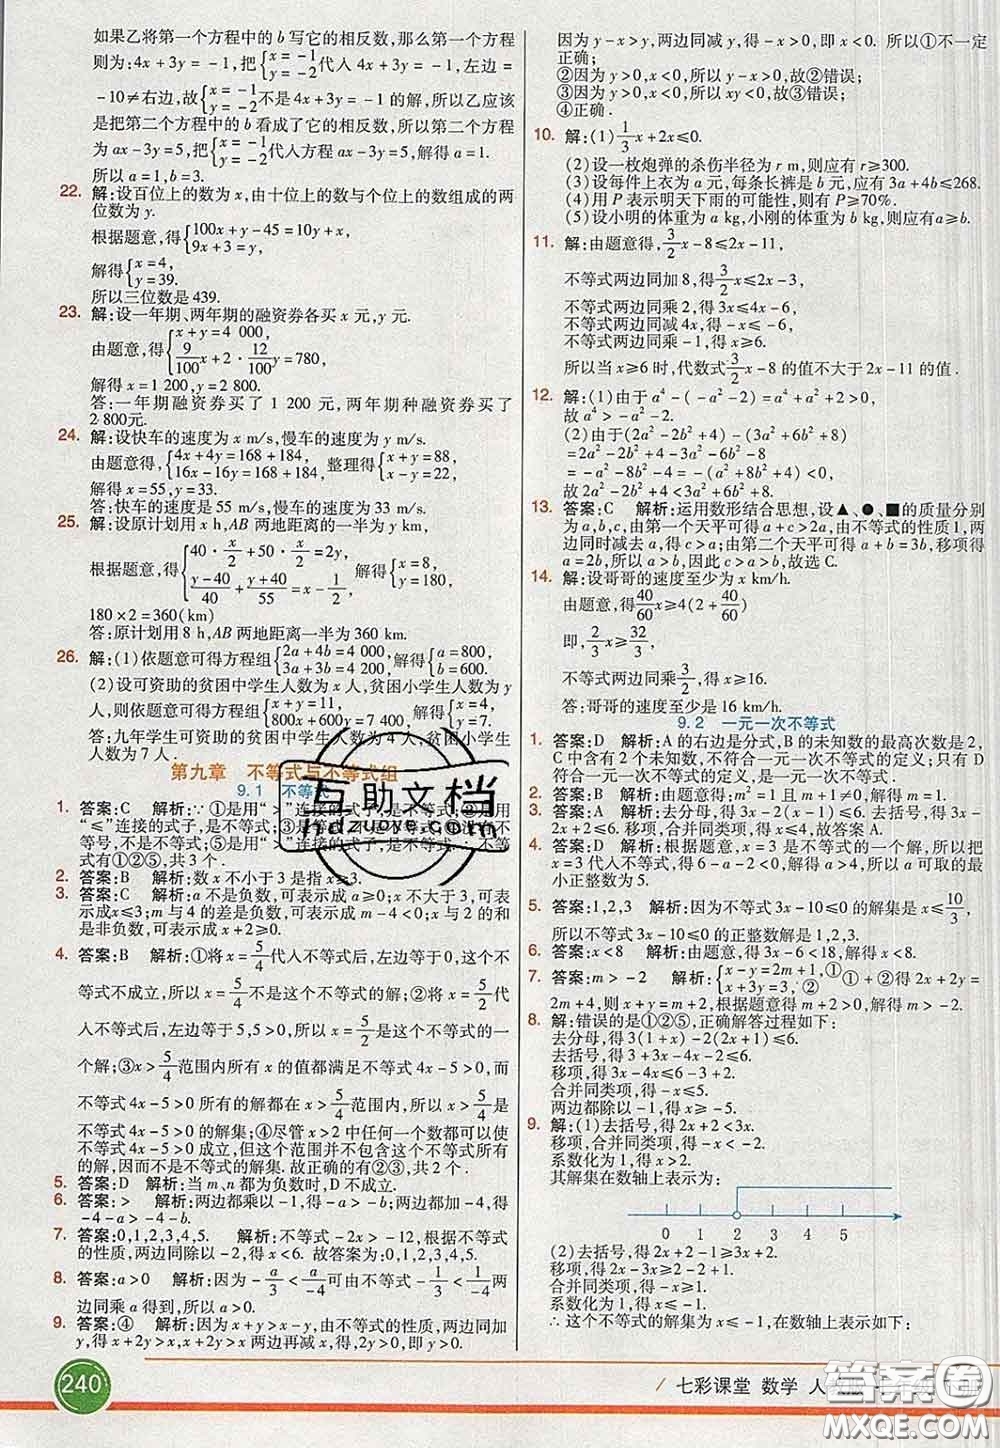 如果乙将第一个方程中的 b 写它的相反数,那么第一个方程
则为:4x+3y=-1,把{x=-1 y=-2代人 4x+3y=-1,左边=
-10≠右边,故{x=-1 y=-2不是 4x+3y=-1 的解,所以乙应该
是把第二个方程中的 b 看成了它的相反数,所以第二个方程
为 ax-3y=5,把{x=-1 y=-2代人方程 ax-3y=5,解得 a=1.
所以 a=1,b=3.
22. 解:设百位上的数为 x,由十位上的数与个位上的数组成的两
位数为 y.
根据题意,得{100x+y-45=10y+x, 9x+3=y,
解得{x=4, y=39.
所以三位数是 439.
23. 解:设一年期、两年期的融资券各买 x 元,y 元.
由题意,得{x+y=4 000, 9/100x+2·12/100y=780,
解得 x=1 200,y=2 800.
答:一年期融资券买了 1 200 元,两年期种融资券买了
2 800元.
24. 解:设快车的速度为 x m/s,慢车的速度为 y m/s.
由题意得{4x+4y=168+184, 16x-16y=168+184, 整理得{x+y=88, x-y=22.
解得 x=55,y=33.
答:快车的速度是 55 m/s,慢车的速度是 33 m/s.
25. 解:设原计划用 x h,AB 两地距离的一半为 y km,
根据题意,得{40·x/2+50·x/2=2y, (y-40)/40+(y+40)/55=x-1/2, 解得{x=8, y=180,
180×2=360(km)
答:原计划用 8 h,AB 两地距离一半为 360 km.
26. 解:(1)依题意可得方程组{2a+4b=4 000, 3a+3b=4 200, 解得{a=800, b=600.
(2)设可资助的贫困中学生人数为 x 人,贫困小学生人数为 y
人,依题意可得方程组{x+y=11, 800x+600y=7 400, 解得{x=4, y=7.
答:九年学生可资助的贫困中学生人数为 4 人,贫困小学生
人数为 7 人.
第九章 不等式与不等式组
9.1 不等式
1. 答案:C 解析:∵①是用“>”连接的式子,是不等式;②是用
“≤”连接的式子,是不等式;③是等式,不是不等式;④没有不
等号,不是不等式;⑤是用“>”连接的式子,是不等式.∴不等
式有①②⑤,共 3 个.
2. 答案:B 解析:数 x 不小于 3 是指 x≥3.
3. 答案:C 解析:a 不是负数,可表示成 a≥0;x 不大于 3,可表
示成x≤3;m 与 4 的差是负数,可表示成 m-4<0;x 与 2 的和
是非负数,可表示成 x+2≥0.
4. 答案:B 解析:①将 x=5/4代人不等式后,左边等于 0,此时
不等式不成立,所以 x=5/4不是这个不等式的解;②将 x=5/2代
人不等式后,左边等于 5,5>0,所以 x=5/2是这个不等式的一
个解;③x>5/4范围内所有的解都满足不等式 4x-5>0,而
不等式 4x-5>0 所有的解都在 x>5/4范围内,所以 x>5/4是
不等式 4x-5>0 的解集;④尽管 x>2 中任何一个数都可以使
不等式 4x-5>0 成立,但这个范围并不包含这个不等式
的所有的解,故不是不等式的解集.故正确的有②③,共 2 个.
5. 答案:D 解析:当 m、n都为负数时,D 不成立.
6. 答案:> 解析:两边都乘以-1,得-a>-b,两边都加-4,得
-4-a>-4-b.
7. 答案:0,1,2,3,4,5. 解析:不等式-2x>-12,根据不等式
的性质,两边同除以-2,得 x<6.故答案为:0,1,2,3,4,5.
8. 答案:a>0 解析:因为-a/3<a/-4可由不等式-1/3<-1/4两
边同乘 a 得到,所以 a>0.
9. 答案:④ 解析:因为x+y>x-y,由不等式的性质,两边同加
y,得 x+2y>x,再根据 x+2y>x 两边再减 x,得,2y>0,则 y>0;
因为 y-x>y,两边同减 y,得-x>0,即 x<0. 所以①不一定
正确;
②因为 y>0,x<0,所以 y-x>0,故②错误;
③因为 y>0,x<0,所以 xy<0,故③错误;
④正确.
10. 解:(1)1/3x+2x≤0.
(2)设一枚炮弹的杀伤半径为 r m,则应有 r≥300.
(3)设每件上衣为 a 元,每条长裤是 b 元,应有 3a+4b≤268.
(4)用 P 表示明天下雨的可能性,则有 P≥70%.
(5)设小明的体重为 a kg,小刚的体重为 b kg,则应有 a≥b.
11. 解:由题意得,3/2x-8≤2x-11,
不等式两边同加 8,得3/2x≤2x-3,
不等式两边同乘 2,得 3x≤4x-6,
不等式两边同减 4x,得-x≤-6,
不等式两边同乘-1,得 x≥6,
所以当 x≥6 时,代数式3/2x-8 的值不大于 2x-11 的值.
12. 解:(1)由于 a⁴-(-a²-2)=a⁴+a²+2>0,
故 a⁴>-a²-2.
(2)由于(2a²-2b²+4)-(3a²+6b²+8)
=2a²-2b²+4-3a²-6b²-8
=-a²-8b²-4=-(a²+8b²+4)<0,
故 2a²-2b²+4<3a²+6b²+8.
13. 答案:C 解析:运用数形结合思想,设▲、●、■的质量分别
为a,b,c,由第一个天平可得 a+c>2a,由不等式的性质1,两
边同时减去 a,得 c>a;由第二个天平可得 a+b=3b,移项得
a=2b,所以 a>b,因此 c>a>b,故选C.
14. 解:设哥哥的速度至少为 x km/h.
由题意,得40/60x≥4(2+40/60)
即,2/3x≥32/3,
不等式两边同乘3/2,得 x≥16.
答:哥哥的速度至少是 16 km/h.
9.2 一元一次不等式
1. 答案:D 解析:A 的右边是分式,B 的未知数的最高次数是 2,
C 中含有两个未知数,不符合一元一次不等式的定义,是一
元一次不等式的是 D.
2. 答案:B 解析:由题意得:m²=1 且 m+1≠0,解得 m=1.
3. 答案:A 解析:去分母,得 3x-2(x-1)≤6.去括号,得 3x-
2x+2≤6.移项,合并同类项,得x≤4.故答案 A.
4. 答案:D 解析:根据题意,x=3 是不等式的一个解,所以把
x=3 代人不等式,得 6-a-2<0,解得 a>4,所以 a 可取的最
小正整数为 5.
5. 答案:1,2,3 解析:因为不等式 3x-10≤0 的解集是 x≤10/3,
所以不等式 3x-10≤0 的正整数解是 1,2,3.
6. 答案:x<8 解析:由题意,得 3x-6<18,解得 x<8.
7. 答案:m>-2 解析:{x-y=2m+1,① x+3y=3,② ①+②得 2x+2y=
2m+4,所以 x+y=m+2,根据题意得 m+2>0,解得 m>-2.
8. 解:错误的是①②⑤,正确解答过程如下:
去分母,得 3(1+x)-2(2x+1)≤6.
去括号,得 3+3x-4x-2≤6.
移项,得 3x-4x≤6-3+2.
合并同类项,得-x≤5.
两边都除以-1,得 x≥-5.
9. 解:(1)去括号,得 2x+2<3x.
移项,合并同类项,得-x<-2.
系数化为 1,得 x>2.
其解集在数轴上表示为:
0 1 2 3 4 5
(2)去括号,得 2x+2-1≥3x+2.
移项,得 2x-3x≥2-2+1.
合并同类项,得-x≥1.
系数化为 1,得 x≤-1.
∴这个不等式的解集为 x≤-1,在数轴上表示如下:
互助文档
hdzuoye.com
240
七彩课堂 数学 人
答案圈
MXQE.COM